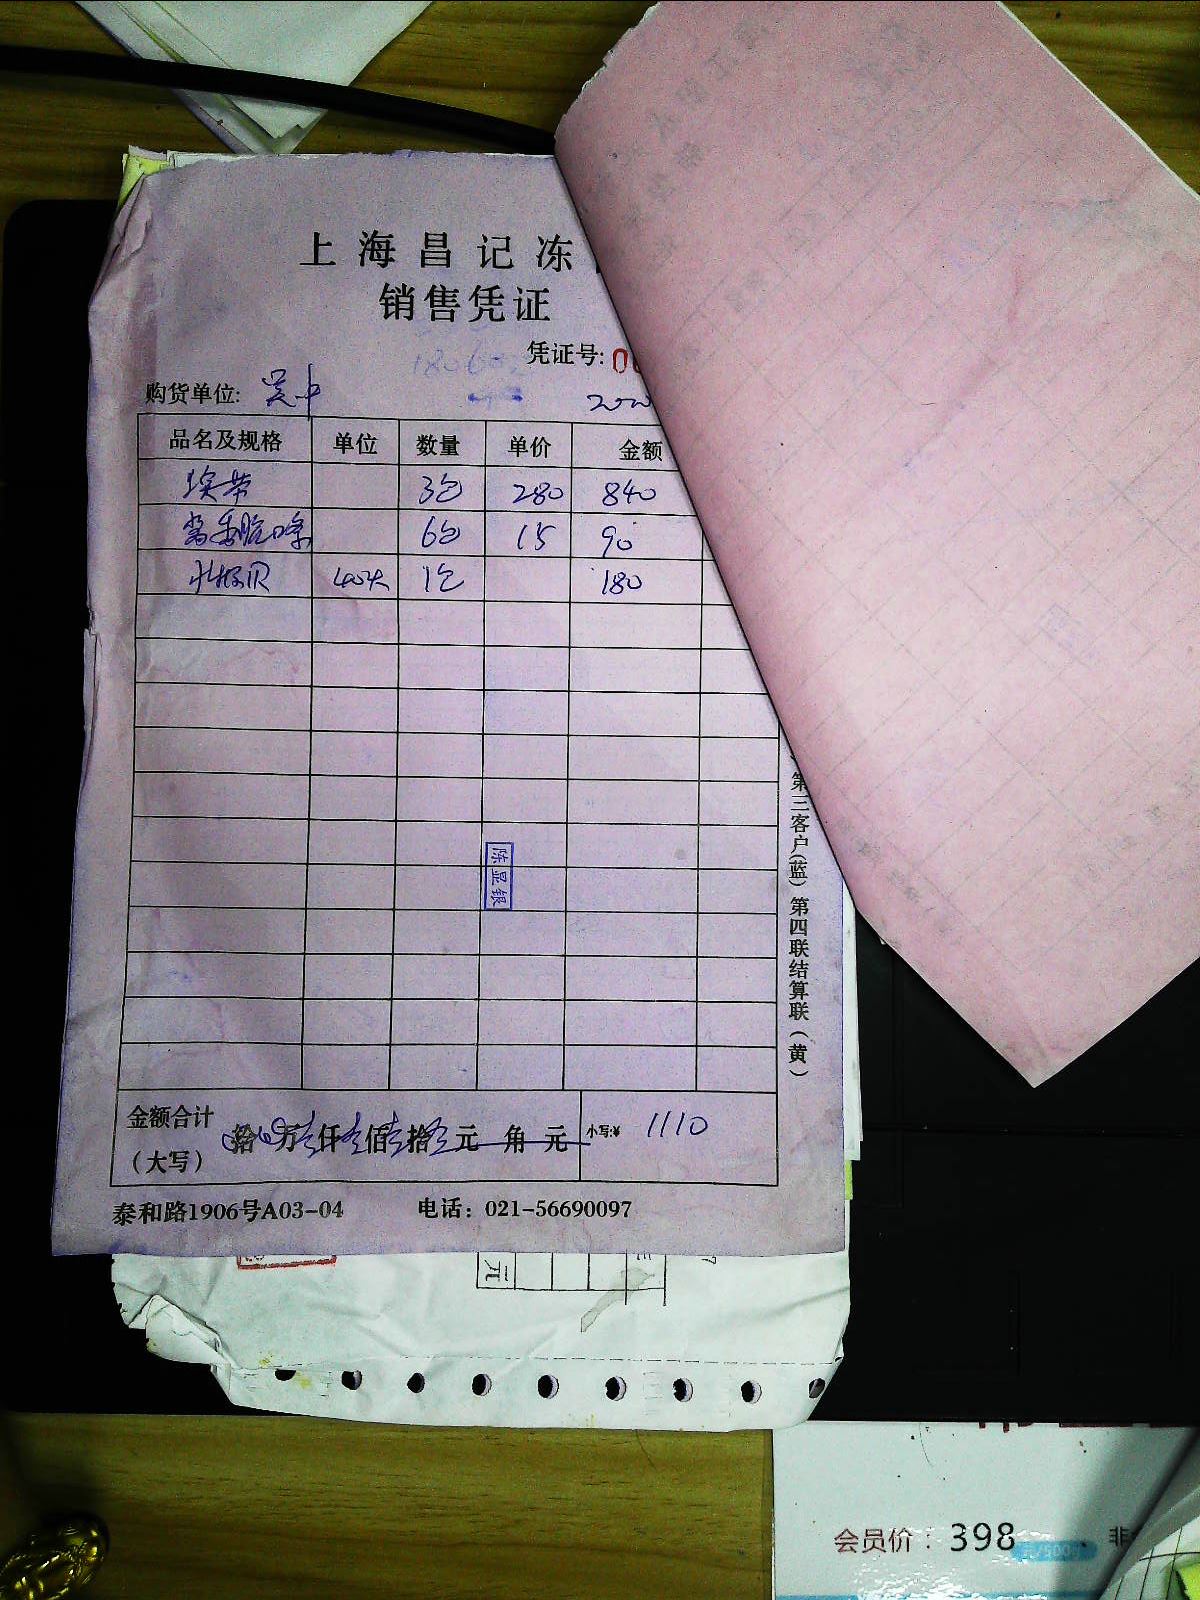 上海昌记冻
销售凭证
凭证号: 00
购货单位: 吴中
2020
品名及规格 单位 数量 单价 金额
3包 280 840
6包 15 90
1包 180
陈显银
第三客户(蓝)第四联结算联(黄)
金额合计
(大写)
拾 万 仟 佰 拾 元 角 元 小写:¥ 1110
泰和路1906号A03-04 电话: 021-56690097
元
会员价: 398
非